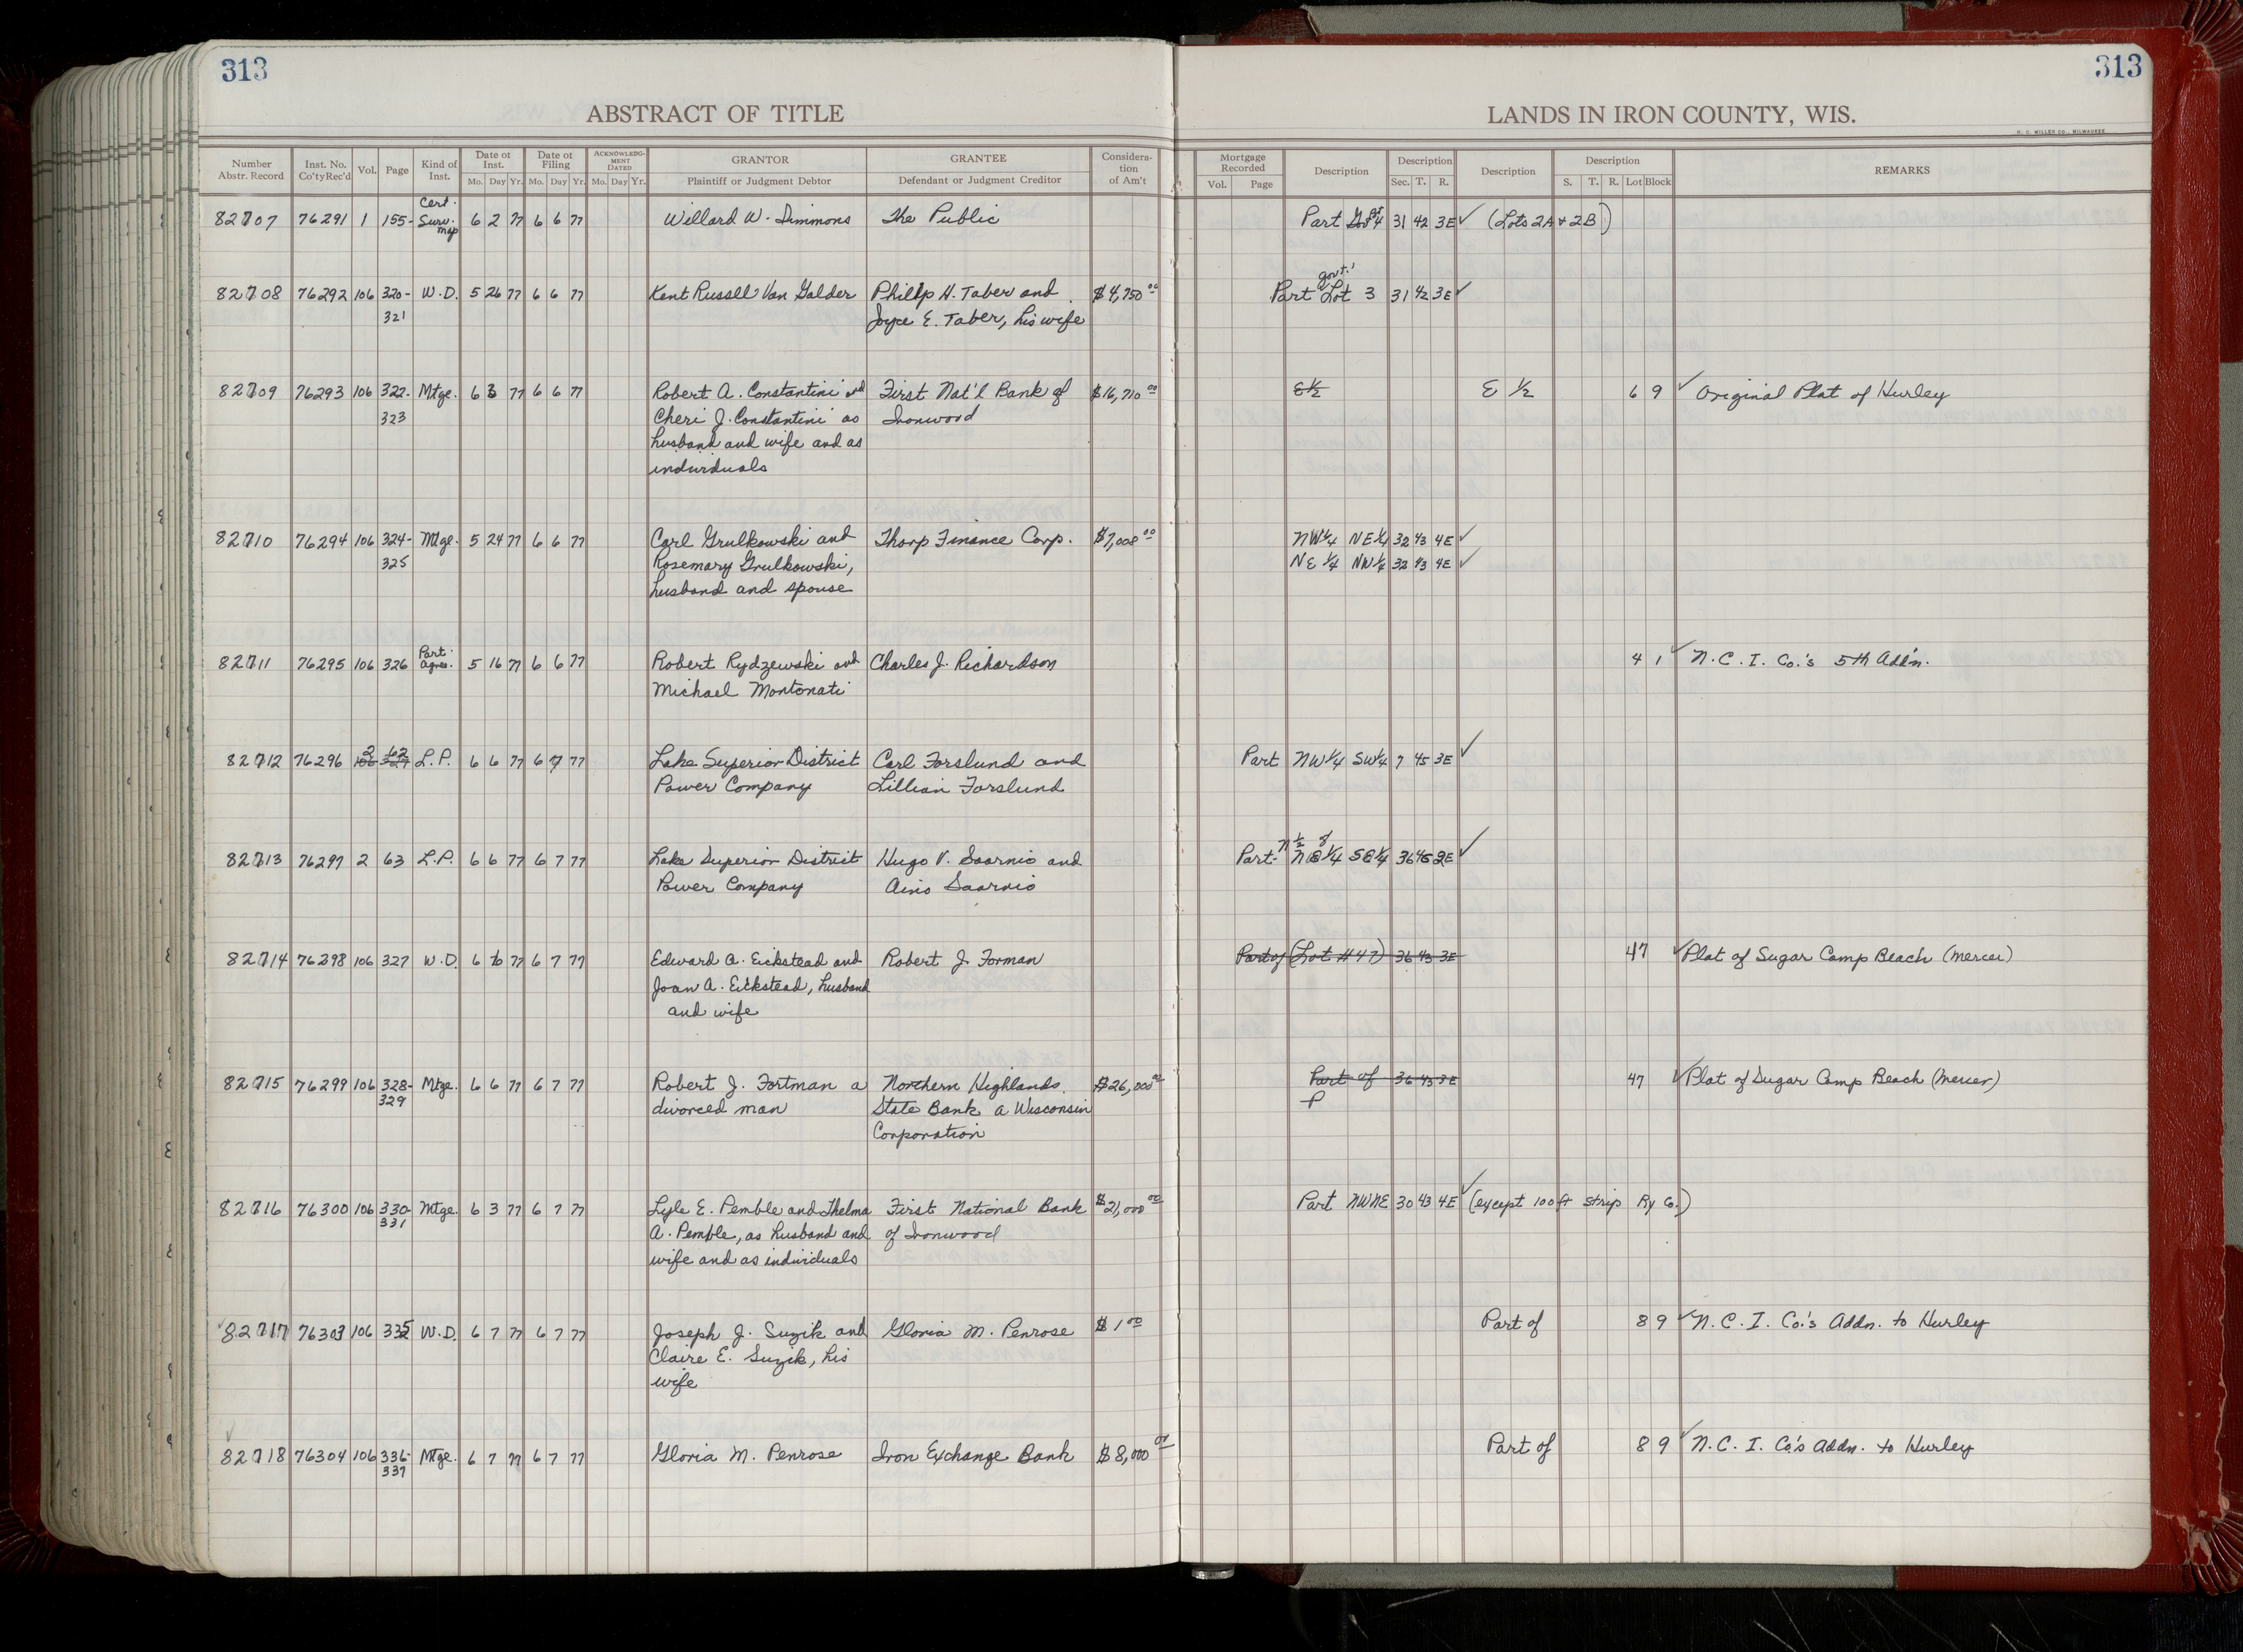 313
313
ABSTRACT OF TITLE
LANDS IN IRON COUNTY, WIS.
H. C. MILLER CO., MILWAUKEE
Number Abstr. Record Inst. No. Co'ty Rec'd Vol. Page Kind of Inst. Date of Inst. Date of Filing ACKNOWLEDGMENT DATED GRANTOR GRANTEE Consideration of Am't Mortgage Recorded Description Description Description Description REMARKS
Mo. Day Yr. Mo. Day Yr. Mo. Day Yr. Plaintiff or Judgment Debtor Defendant or Judgment Creditor Vol. Page Sec. T. R. S. T. R. Lot Block
Cert.
82707 76291 1 155- Surv. 6 2 77 6 6 77 Willard W. Simmons The Public Part Lot 4 31 42 3E ✓ (Lots 2A + 2B)
map
govt.
82708 76292 106 320- W.D. 5 26 77 6 6 77 Kent Russell Van Galder Phillip H. Taber and $4,750 00 Part Lot 3 31 42 3E ✓
321 Joyce E. Taber, his wife
82709 76293 106 322- Mtge. 6 3 77 6 6 77 Robert A. Constantini and First Nat'l Bank of $16,710 00 E½ E ½ 6 9 ✓ Original Plat of Hurley
323 Cheri J. Constantini as Ironwood
husband and wife and as
individuals
82710 76294 106 324- Mtge. 5 24 77 6 6 77 Carl Grulkowski and Thorp Finance Corp. $7,008 00 NW¼ NE¼ 32 43 4E ✓
325 Rosemary Grulkowski, NE ¼ NW¼ 32 43 4E ✓
husband and spouse
Part.
82711 76295 106 326 agree. 5 16 77 6 6 77 Robert Rydzewski and Charles J. Richardson 4 1 ✓ N.C.I. Co.'s 5th Add'n.
Michael Montonati
2 62
82712 76296 106 327 L.P. 6 6 77 6 7 77 Lake Superior District Carl Forslund and Part NW¼ SW¼ 7 45 3E ✓
Power Company Lillian Forslund
N ½ of
82713 76297 2 63 L.P. 6 6 77 6 7 77 Lake Superior District Hugo V. Saarnio and Part- NE¼ SE¼ 36 46 2E ✓
Power Company Aino Saarnio
82714 76298 106 327 W.D. 6 6 77 6 7 77 Edward A. Eickstead and Robert J. Forman Part of (Lot #47) 36 43 3E 47 ✓ Plat of Sugar Camp Beach (Mercer)
Joan A. Eickstead, husband
and wife
82715 76299 106 328- Mtge. 6 6 77 6 7 77 Robert J. Fortman a Northern Highlands $26,000 00 Part of 36 43 3E 47 ✓ Plat of Sugar Camp Beach (Mercer)
329 divorced man State Bank a Wisconsin P
Corporation
82716 76300 106 330- Mtge. 6 3 77 6 7 77 Lyle E. Pemble and Thelma First National Bank $21,000 00 Part NWNE 30 43 4E ✓ (except 100 ft strip Ry Co.)
331 A. Pemble, as husband and of Ironwood
wife and as individuals
82717 76303 106 335 W.D. 6 7 77 6 7 77 Joseph J. Suzik and Gloria M. Penrose $1 00 Part of 8 9 ✓ N.C.I. Co.'s Addn. to Hurley
Claire E. Suzik, his
wife
82718 76304 106 336- Mtge. 6 7 77 6 7 77 Gloria M. Penrose Iron Exchange Bank $8,000 00 Part of 8 9 ✓ N.C.I. Co's Addn. to Hurley
337